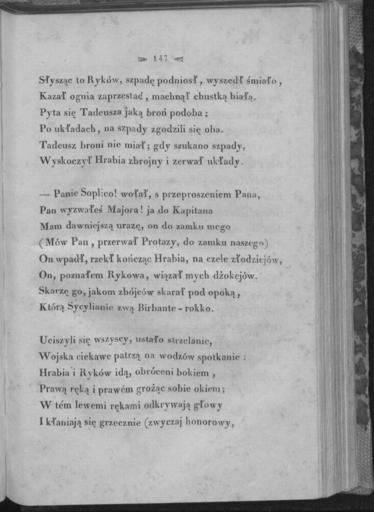 147
Słysząc to Ryków, szpadę podniosł, wyszedł śmiało,
Kazał ognia zaprzestać, machnął chustką białą.
Pyta się Tadeusza jaką broń podoba;
Po układach, na szpady zgodzili się oba.
Tadeusz broni nie miał; gdy szukano szpady,
Wyskoczył Hrabia zbrojny i zerwał układy.
— Panie Soplico! wołał, s przeproszeniem Pana,
Pan wyzwałeś Majora! ja do Kapitana
Mam dawniejszą urazę, on do zamku mego
(Mów Pan, przerwał Protazy, do zamku naszego)
On wpadł, rzekł kończąc Hrabia, na czele złodziejów,
On, poznałem Rykowa, wiązał mych dżokejów.
Skarzę go, jakom zbójców skarał pod opoką,
Którą Sycylianie zwą Birbante-rokko.
Uciszyli się wszyscy, ustało strzelanie,
Wojska ciekawe patrzą na wodzów spotkanie:
Hrabia i Ryków idą, obróceni bokiem,
Prawą ręką i prawém grożąc sobie okiem;
W tém lewemi rękami odkrywają głowy
I kłaniają się grzecznie (zwyczaj honorowy,